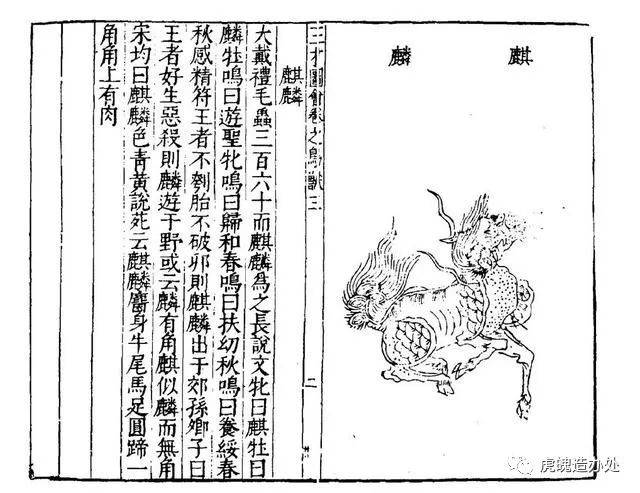 麒麟
三才圖會卷之鳥獸三
二
麒麟
大戴禮毛蟲三百六十而麒麟爲之長說文牝曰麒牡曰
麟牡鳴曰遊聖牝鳴曰歸和春鳴曰扶幼秋鳴曰養綏春
秋感精符王者不刳胎不破卵則麒麟出于郊孫卿子曰
王者好生惡殺則麟遊于野或云麟有角麒似麟而無角
宋均曰麒麟色青黃說苑云麒麟麕身牛尾馬足圓蹄一
角角上有肉
虎魄造办处